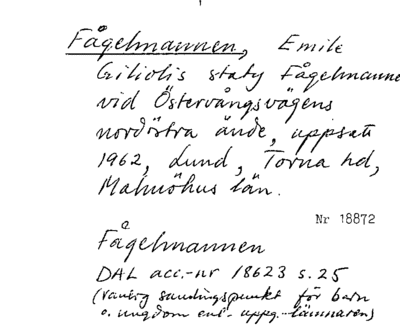 Fågelmannen, Emile
Giliolis staty Fågelmanne
vid Östervångsvägens
nordöstra ände, uppsatt
1962, Lund, Torna hd,
Malmöhus län.
Nr 18872
Fågelmannen
DAL acc.-nr 18623 s. 25
(vanlig samlingspunkt för barn
o. ungdom enl. uppg. lämnaren)